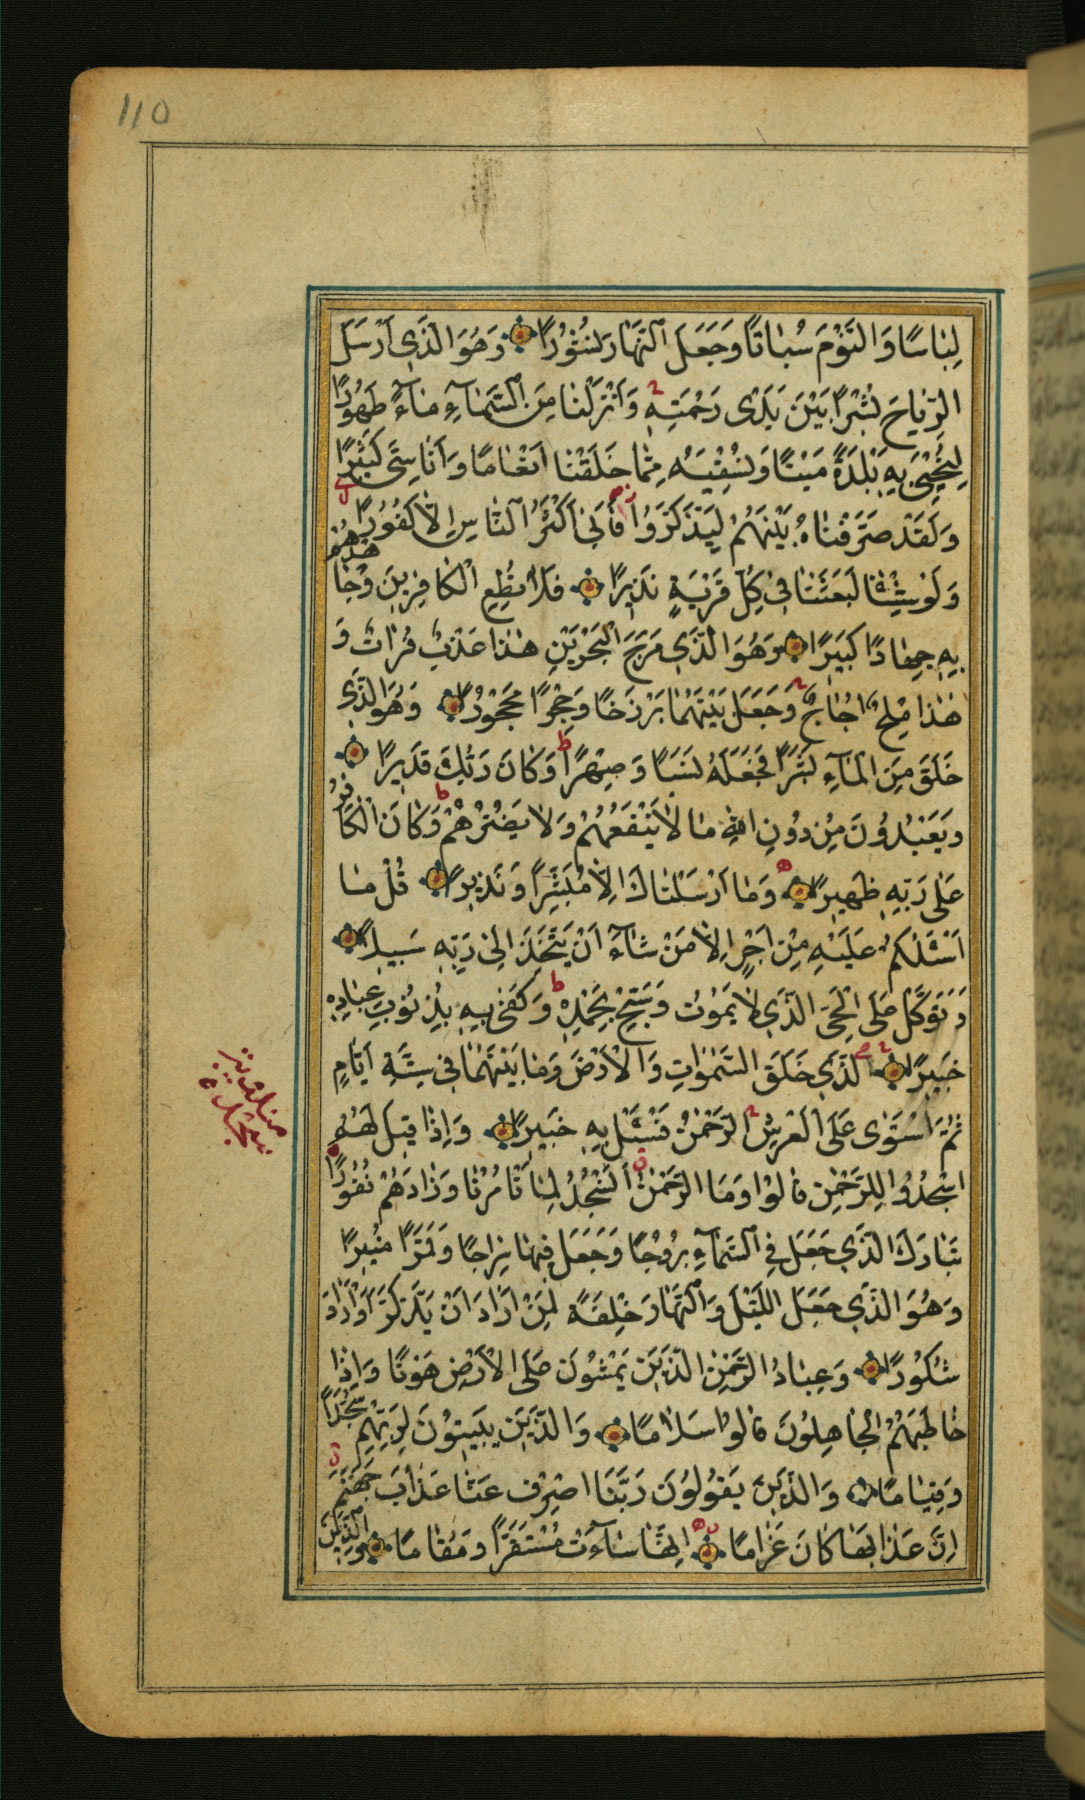 110
لِبَاسًا وَالنَّوْمَ سُبَاتًا وَجَعَلَ النَّهَارَ نُشُورًا وَهُوَ الَّذِي أَرْسَلَ
الرِّيَاحَ بُشْرًا بَيْنَ يَدَيْ رَحْمَتِهِ وَأَنْزَلْنَا مِنَ السَّمَاءِ مَاءً طَهُورًا
لِنُحْيِيَ بِهِ بَلْدَةً مَيْتًا وَنُسْقِيَهُ مِمَّا خَلَقْنَا أَنْعَامًا وَأَنَاسِيَّ كَثِيرًا
وَلَقَدْ صَرَّفْنَاهُ بَيْنَهُمْ لِيَذَّكَّرُوا فَأَبَى أَكْثَرُ النَّاسِ إِلَّا كُفُورًا
وَلَوْ شِئْنَا لَبَعَثْنَا فِي كُلِّ قَرْيَةٍ نَذِيرًا فَلَا تُطِعِ الْكَافِرِينَ وَجَاهِدْهُمْ
بِهِ جِهَادًا كَبِيرًا وَهُوَ الَّذِي مَرَجَ الْبَحْرَيْنِ هَذَا عَذْبٌ فُرَاتٌ وَ
هَذَا مِلْحٌ أُجَاجٌ وَجَعَلَ بَيْنَهُمَا بَرْزَخًا وَحِجْرًا مَحْجُورًا وَهُوَ الَّذِي
خَلَقَ مِنَ الْمَاءِ بَشَرًا فَجَعَلَهُ نَسَبًا وَصِهْرًا وَكَانَ رَبُّكَ قَدِيرًا
وَيَعْبُدُونَ مِنْ دُونِ اللَّهِ مَا لَا يَنْفَعُهُمْ وَلَا يَضُرُّهُمْ وَكَانَ الْكَافِرُ
عَلَى رَبِّهِ ظَهِيرًا وَمَا أَرْسَلْنَاكَ إِلَّا مُبَشِّرًا وَنَذِيرًا قُلْ مَا
أَسْئَلُكُمْ عَلَيْهِ مِنْ أَجْرٍ إِلَّا مَنْ شَاءَ أَنْ يَتَّخِذَ إِلَى رَبِّهِ سَبِيلًا
وَتَوَكَّلْ عَلَى الْحَيِّ الَّذِي لَا يَمُوتُ وَسَبِّحْ بِحَمْدِهِ وَكَفَى بِهِ بِذُنُوبِ عِبَادِهِ
خَبِيرًا الَّذِي خَلَقَ السَّمَوَاتِ وَالْأَرْضَ وَمَا بَيْنَهُمَا فِي سِتَّةِ أَيَّامٍ
ثُمَّ اسْتَوَى عَلَى الْعَرْشِ الرَّحْمَنُ فَسْئَلْ بِهِ خَبِيرًا وَإِذَا قِيلَ لَهُمُ
اسْجُدُوا لِلرَّحْمَنِ قَالُوا وَمَا الرَّحْمَنُ أَنَسْجُدُ لِمَا تَأْمُرُنَا وَزَادَهُمْ نُفُورًا
تَبَارَكَ الَّذِي جَعَلَ فِي السَّمَاءِ بُرُوجًا وَجَعَلَ فِيهَا سِرَاجًا وَقَمَرًا مُنِيرًا
وَهُوَ الَّذِي جَعَلَ اللَّيْلَ وَالنَّهَارَ خِلْفَةً لِمَنْ أَرَادَ أَنْ يَذَّكَّرَ أَوْ أَرَادَ
شُكُورًا وَعِبَادُ الرَّحْمَنِ الَّذِينَ يَمْشُونَ عَلَى الْأَرْضِ هَوْنًا وَإِذَا
خَاطَبَهُمُ الْجَاهِلُونَ قَالُوا سَلَامًا وَالَّذِينَ يَبِيتُونَ لِرَبِّهِمْ سُجَّدًا
وَقِيَامًا وَالَّذِينَ يَقُولُونَ رَبَّنَا اصْرِفْ عَنَّا عَذَابَ جَهَنَّمَ
إِنَّ عَذَابَهَا كَانَ غَرَامًا إِنَّهَا سَاءَتْ مُسْتَقَرًّا وَمُقَامًا وَالَّذِينَ